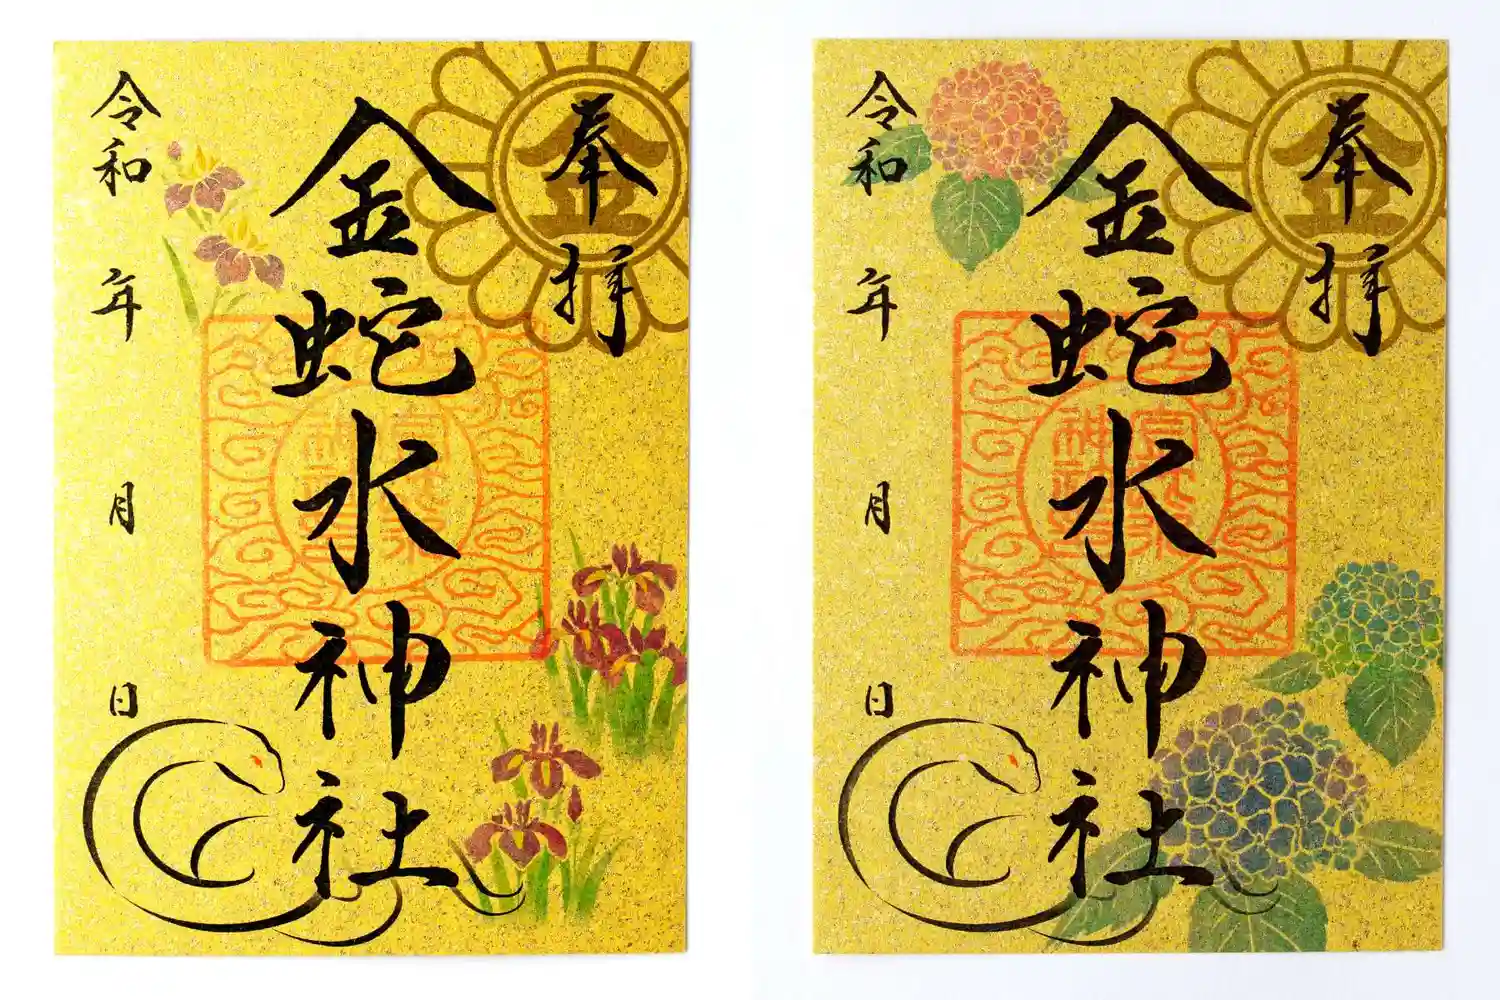 奉拝
金蛇水神社
令和 年 月 日
奉拝
金蛇水神社
令和 年 月 日